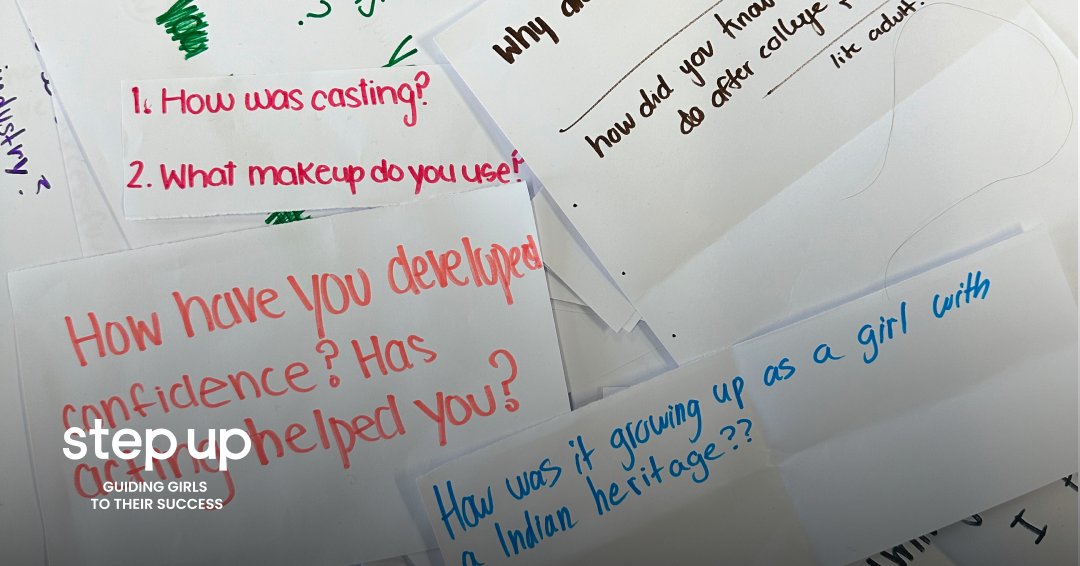 1. How was casting?
2. What makeup do you use?
How have you developed
confidence? Has
acting helped you?
Why
how did you know
do after college
like adult.
How was it growing up as a girl with
a Indian heritage??
industry.
I
step up
GUIDING GIRLS
TO THEIR SUCCESS